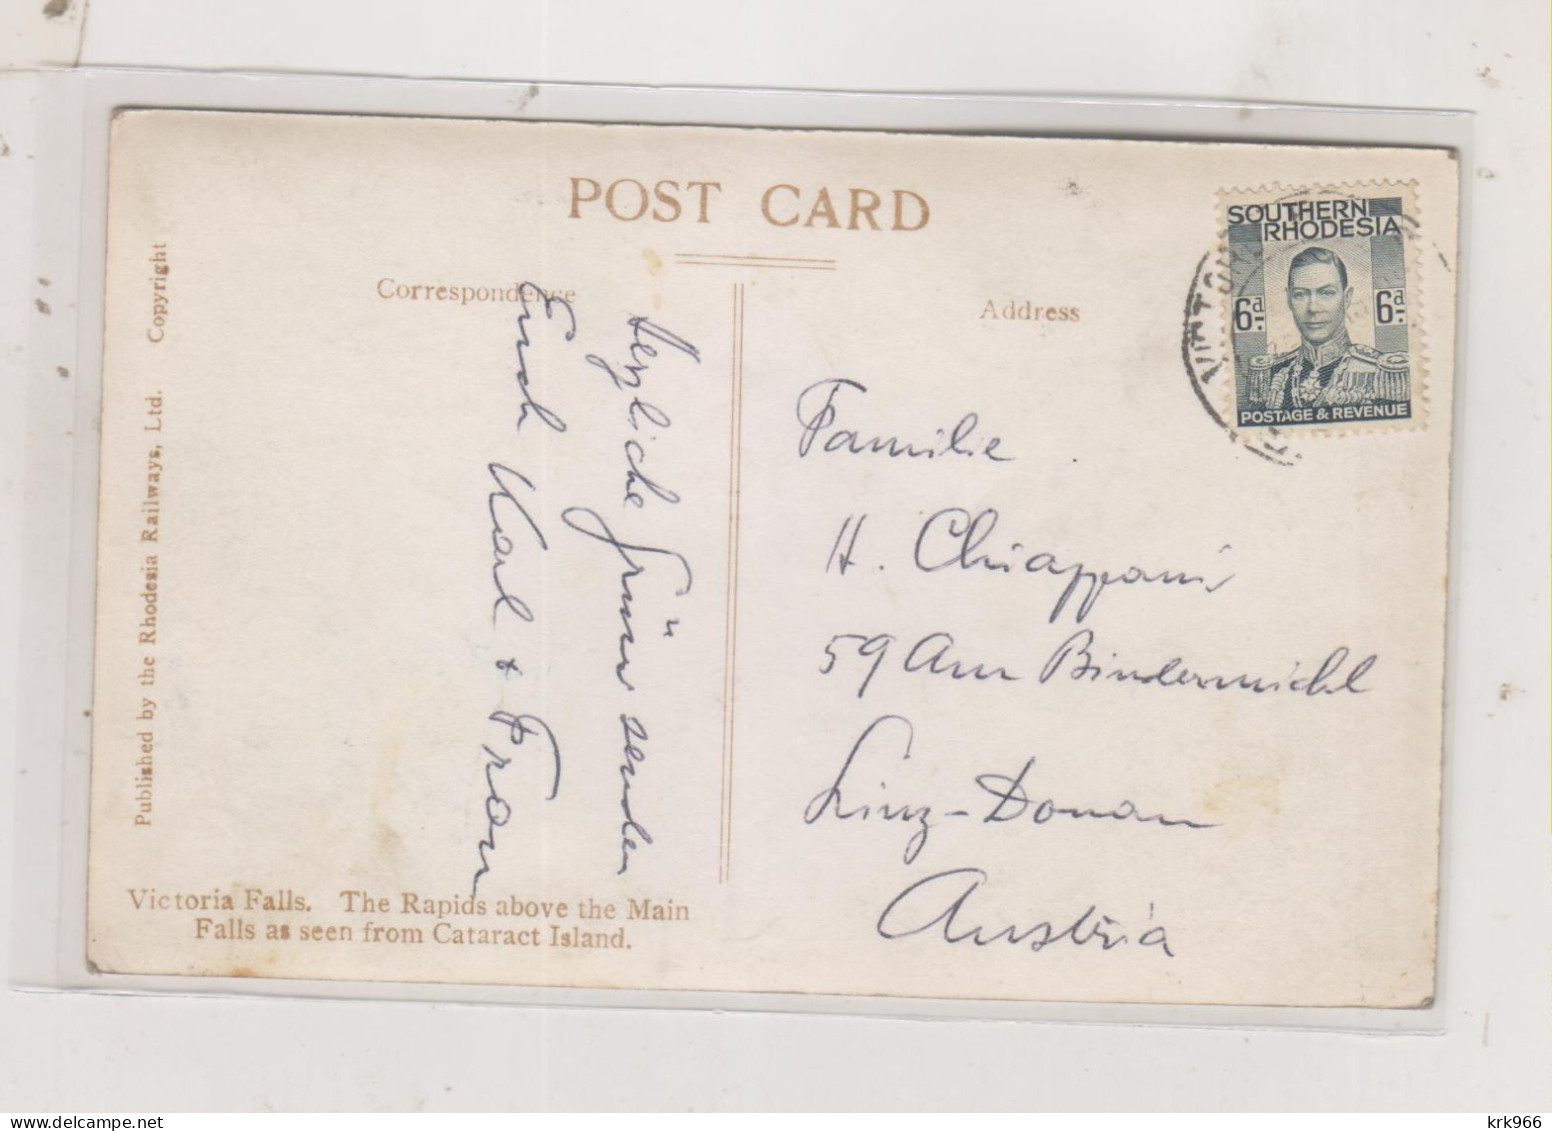 POST CARD
Correspondence
Address
Copyright
Published by the Rhodesia Railways, Ltd.
SOUTHERN
RHODESIA
6d
6d
POSTAGE & REVENUE
Herzliche Grüsse senden
Euch Karl & Fran
Familie
H. Chiappani
59 Am Bindermichl
Linz-Donau
Austria
Victoria Falls. The Rapids above the Main
Falls as seen from Cataract Island.
krk966